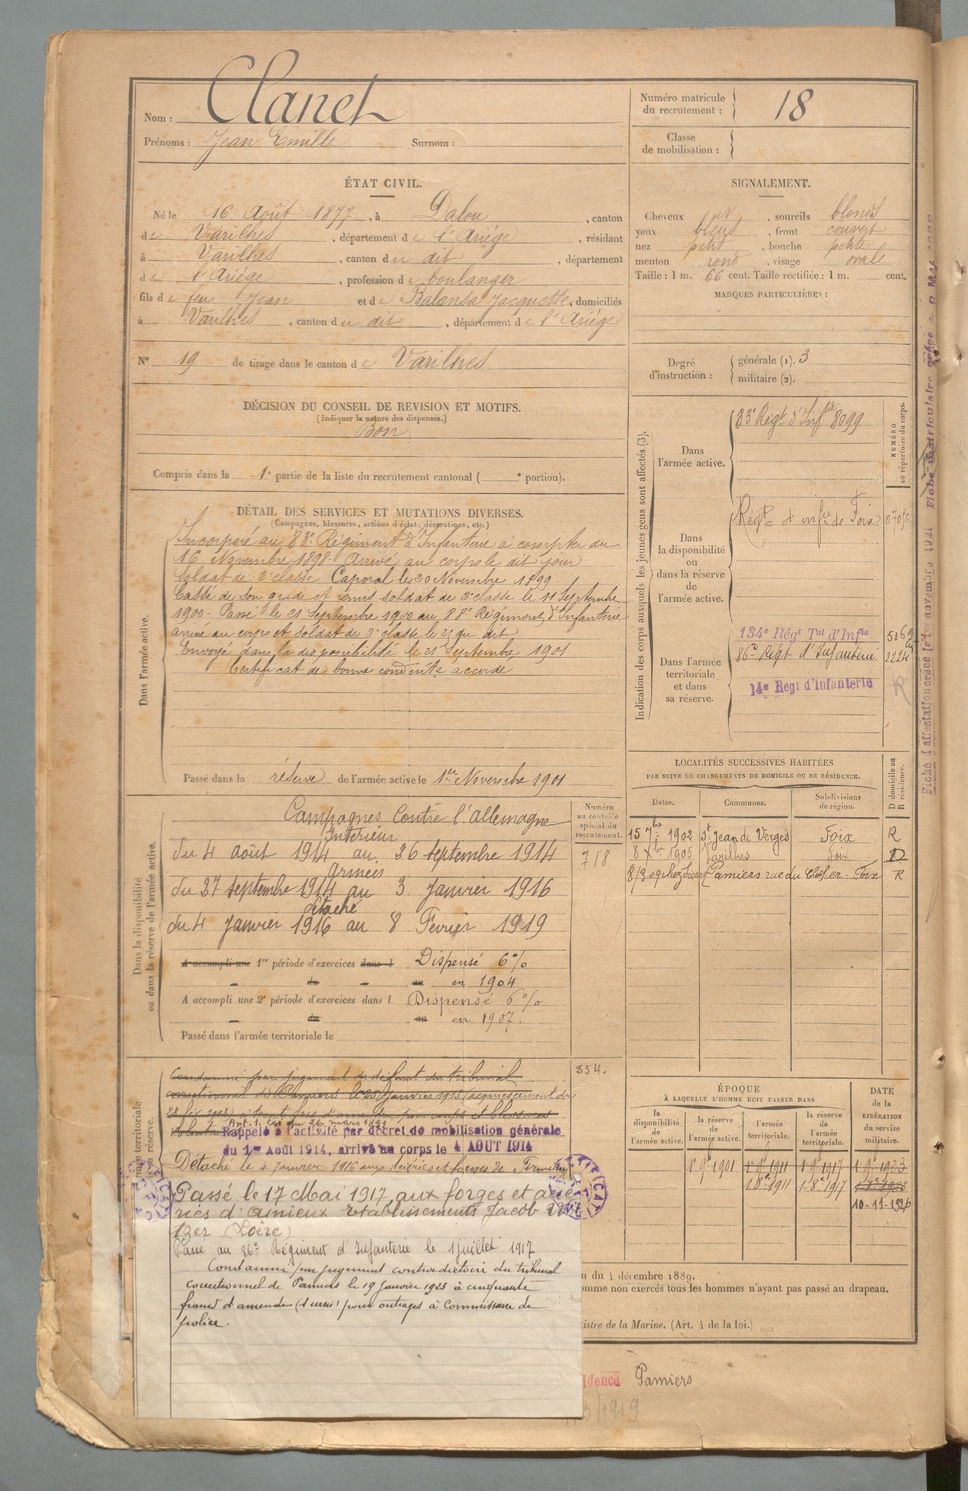 Nom : Clanet
Prénoms : Jean Emille Surnom :
Numéro matricule du recrutement : 18
Classe de mobilisation :
ÉTAT CIVIL.
Né le 16 Août 1877, à Dalou, canton
de Varilhes, département de l'Ariége, résidant
à Varilhes, canton du dit, département
de l'Ariége, profession de boulanger
fils de feu Jean et de Balansa Jacquette, domiciliés
à Varilhes, canton du dit, département de l'Ariége
N° 19 de tirage dans le canton de Varilhes
SIGNALEMENT.
Cheveux et, sourcils blonds
yeux bleus, front couvert
nez petit, bouche petite
menton rond, visage ovale
Taille : 1 m. 66 cent. Taille rectifiée : 1 m. cent.
MARQUES PARTICULIÈRES :
Degré d'instruction : générale (1). 3
militaire (2).
DÉCISION DU CONSEIL DE REVISION ET MOTIFS.
(Indiquer la nature des dispenses.)
Bon
Compris dans la 1e partie de la liste du recrutement cantonal ( e portion).
DÉTAIL DES SERVICES ET MUTATIONS DIVERSES.
(Campagnes, blessures, actions d'éclat, décorations, etc.)
Dans l'armée active.
Incorporé au 83e Régiment d'Infanterie à compter du
16 Novembre 1898. Arrivé au corps le dit jour
soldat de 2e classe Caporal le 20 Novembre 1899
Cassé de son grade et remis soldat de 2e classe le 11 Septembre
1900. Passé le 21 Septembre 1900 au 88e Régiment d'Infanterie
arrivé au corps et soldat de 2e classe le dit
Envoyé dans la disponibilité le 21 Septembre 1901
Certificat de bonne conduite accordé
Passé dans la réserve de l'armée active le 1er Novembre 1901
Indication des corps auxquels les jeunes gens sont affectés (3).
NUMÉRO au répertoire du corps.
Dans l'armée active.
83e Régt d'Inf 8099
Dans la disponibilité ou dans la réserve de l'armée active.
Régt d'infie de Foix
Dans l'armée territoriale et dans sa réserve.
134e Régt Tal d'Infie
86e Régt d'Infanterie
14e Regt d'Infanterie
R
LOCALITÉS SUCCESSIVES HABITÉES
PAR SUITE DE CHANGEMENTS DE DOMICILE OU DE RÉSIDENCE.
Dates. Communes. Subdivisions de région. D domicile ou R résidence.
15 7bre 1902 St Jean de Verges Foix R
8 Xbre 1905 Varilhes Foix D
Pamiers rue du Foix R
Dans la disponibilité ou dans la réserve de l'armée active.
Numéro au contrôle spécial du recrutement.
718
Campagnes Contre l'allemagne
Intérieur
du 4 août 1914 au 26 septembre 1914
Armées
du 27 septembre 1914 au 3 Janvier 1916
détaché
du 4 Janvier 1916 au 8 Février 1919
A accompli une 1re période d'exercices dans l Dispensé 6%
du au en 1904
A accompli une 2e période d'exercices dans l Dispensé 6%
du au en 1907.
Passé dans l'armée territoriale le
554.
Condamné par jugement de défaut du tribunal
correctionnel de Pamiers le
Rappelé à l'activité par décret de mobilisation générale
du 1er Août 1914, arrivé au corps le 4 AOUT 1914
Détaché le 4 Janvier 1916 aux aciéries et forges de Firminy
Passé le 17 Mai 1917 aux forges et acié-
riés d'Amieux Etablissements Jacob
(Loire)
Passé au 86e Régiment d'Infanterie le 1 Juillet 1917
Condamné par jugement contradictoire du tribunal
correctionnel de Pamiers le 19 Janvier 1923 à cinquante
francs d'amende (d sursis) pour outrages à Commissaire de
police.
ÉPOQUE
À LAQUELLE L'HOMME DOIT PASSER DANS
la disponibilité de l'armée active.
la réserve de l'armée active.
l'armée territoriale.
la réserve de l'armée territoriale.
DATE de la LIBÉRATION DU SERVICE militaire.
1er 9bre 1901 1er 9bre 1911 1er 9bre 1917 1er 9bre 1923
10-11-1926
n du 4 décembre 1889.
omme non exercés tous les hommes n'ayant pas passé au drapeau.
istre de la Marine. (Art. 4 de la loi.)
idence Pamiers
/1919